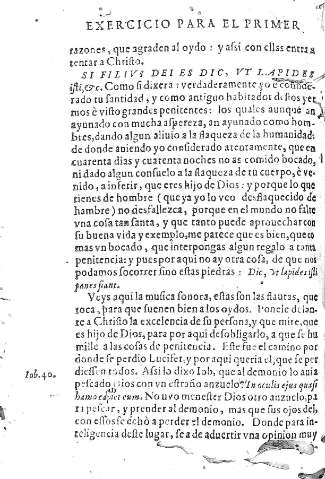 EXERCICIO PARA EL PRIMER
razones, que agraden al oydo: y assi con ellas entra a
tentar a Christo.
SI FILIVS DEI ES DIC, VT LAPIDES
isti, &c. Como si dixera: verdaderamente yo è conside-
rado tu santidad, y como antiguo habitador destos yer-
mos è visto grandes penitentes: los quales aunque an
ayunado con mucha aspereza, an ayunado como hom-
bres, dando algun aliuio a la flaqueza de la humanidad:
de donde auiendo yo considerado atentamente, que en
cuarenta dias y cuarenta noches no as comido bocado,
ni dado algun consuelo a la flaqueza de tu cuerpo, è ve-
nido, a inferir, que eres hijo de Dios: y porque lo que
tienes de hombre (que ya yo lo veo desflaquecido de
hambre) no desfallezca, porque en el mundo no falte
vna cosa tan santa, y que tanto puede aprouechar con
su buena vida y exemplo, me parece que es bien, que to
mas vn bocado, que interpongas algun regalo a tanta
penitencia: y pues por aqui no ay otra cosa, de que nos
podamos socorrer sino estas piedras: Dic, vt lapides isti
panes fiant.
Veys aqui la musica sonora, estas son las flautas, que
toca, para que suenen bien a los oydos. Ponele delan-
te a Christo la excelencia de su persona, y que mire, que
es hijo de Dios, para por aqui desobligarlo, a que se hu
mille a las cosas de penitencia. Este fue el camino por
donde se perdio Lucifer, y por aqui queria el, que se per
diessen todos. Assi lo dixo Iob, que al demonio lo auia
Iob. 40.
pescado Dios con vn estraño anzuelo: In oculis ejus quasi
hamo capiet eum. No uvo menester Dios otro anzuelo, pa
ra pescar, y prender al demonio, mas que sus ojos del,
con essos se echò a perder el demonio. Donde para in-
teligencia deste lugar, se a de aduertir vna opinion muy